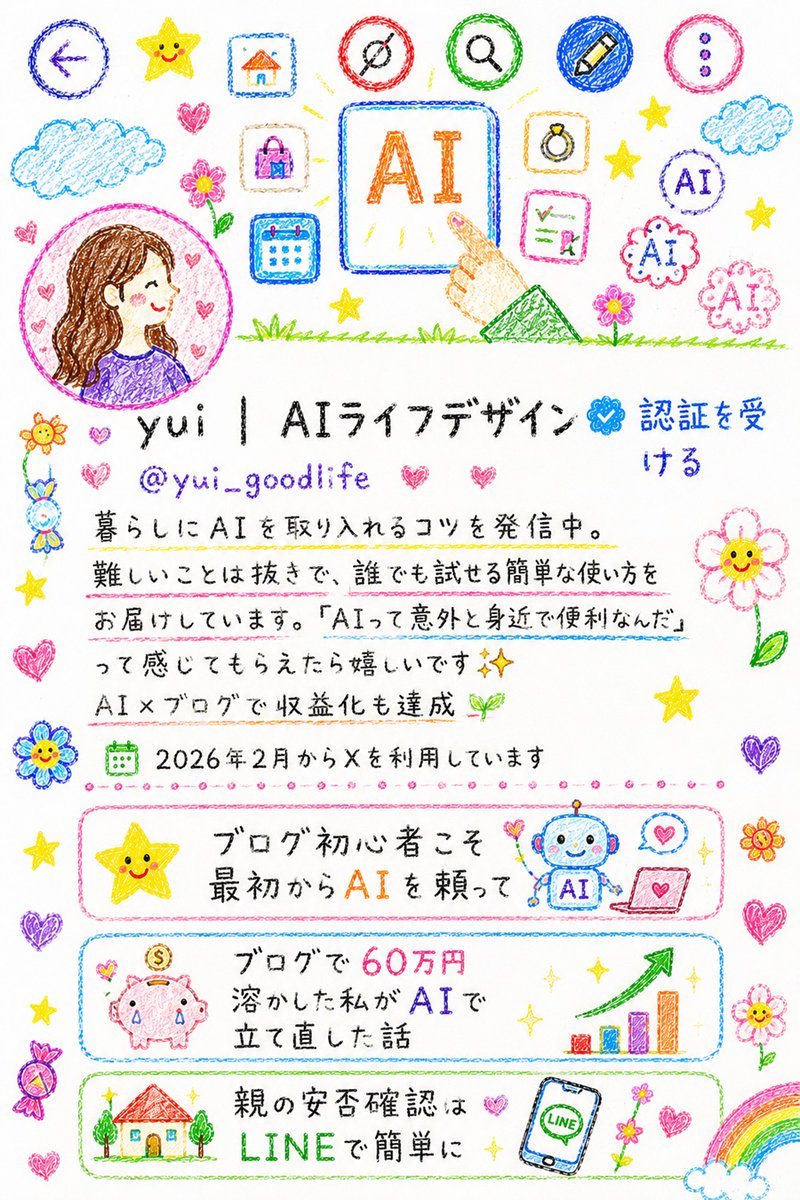 AI
AI
AI
AI
yui | AIライフデザイン
認証を受
ける
@yui_goodlife
暮らしにAIを取り入れるコツを発信中。
難しいことは抜きで、誰でも試せる簡単な使い方を
お届けしています。「AIって意外と身近で便利なんだ」
って感じてもらえたら嬉しいです✨
AI×ブログで収益化も達成🌱
2026年2月からXを利用しています
ブログ初心者こそ
最初からAIを頼って
AI
$
ブログで60万円
溶かした私がAIで
立て直した話
親の安否確認は
LINEで簡単に
LINE